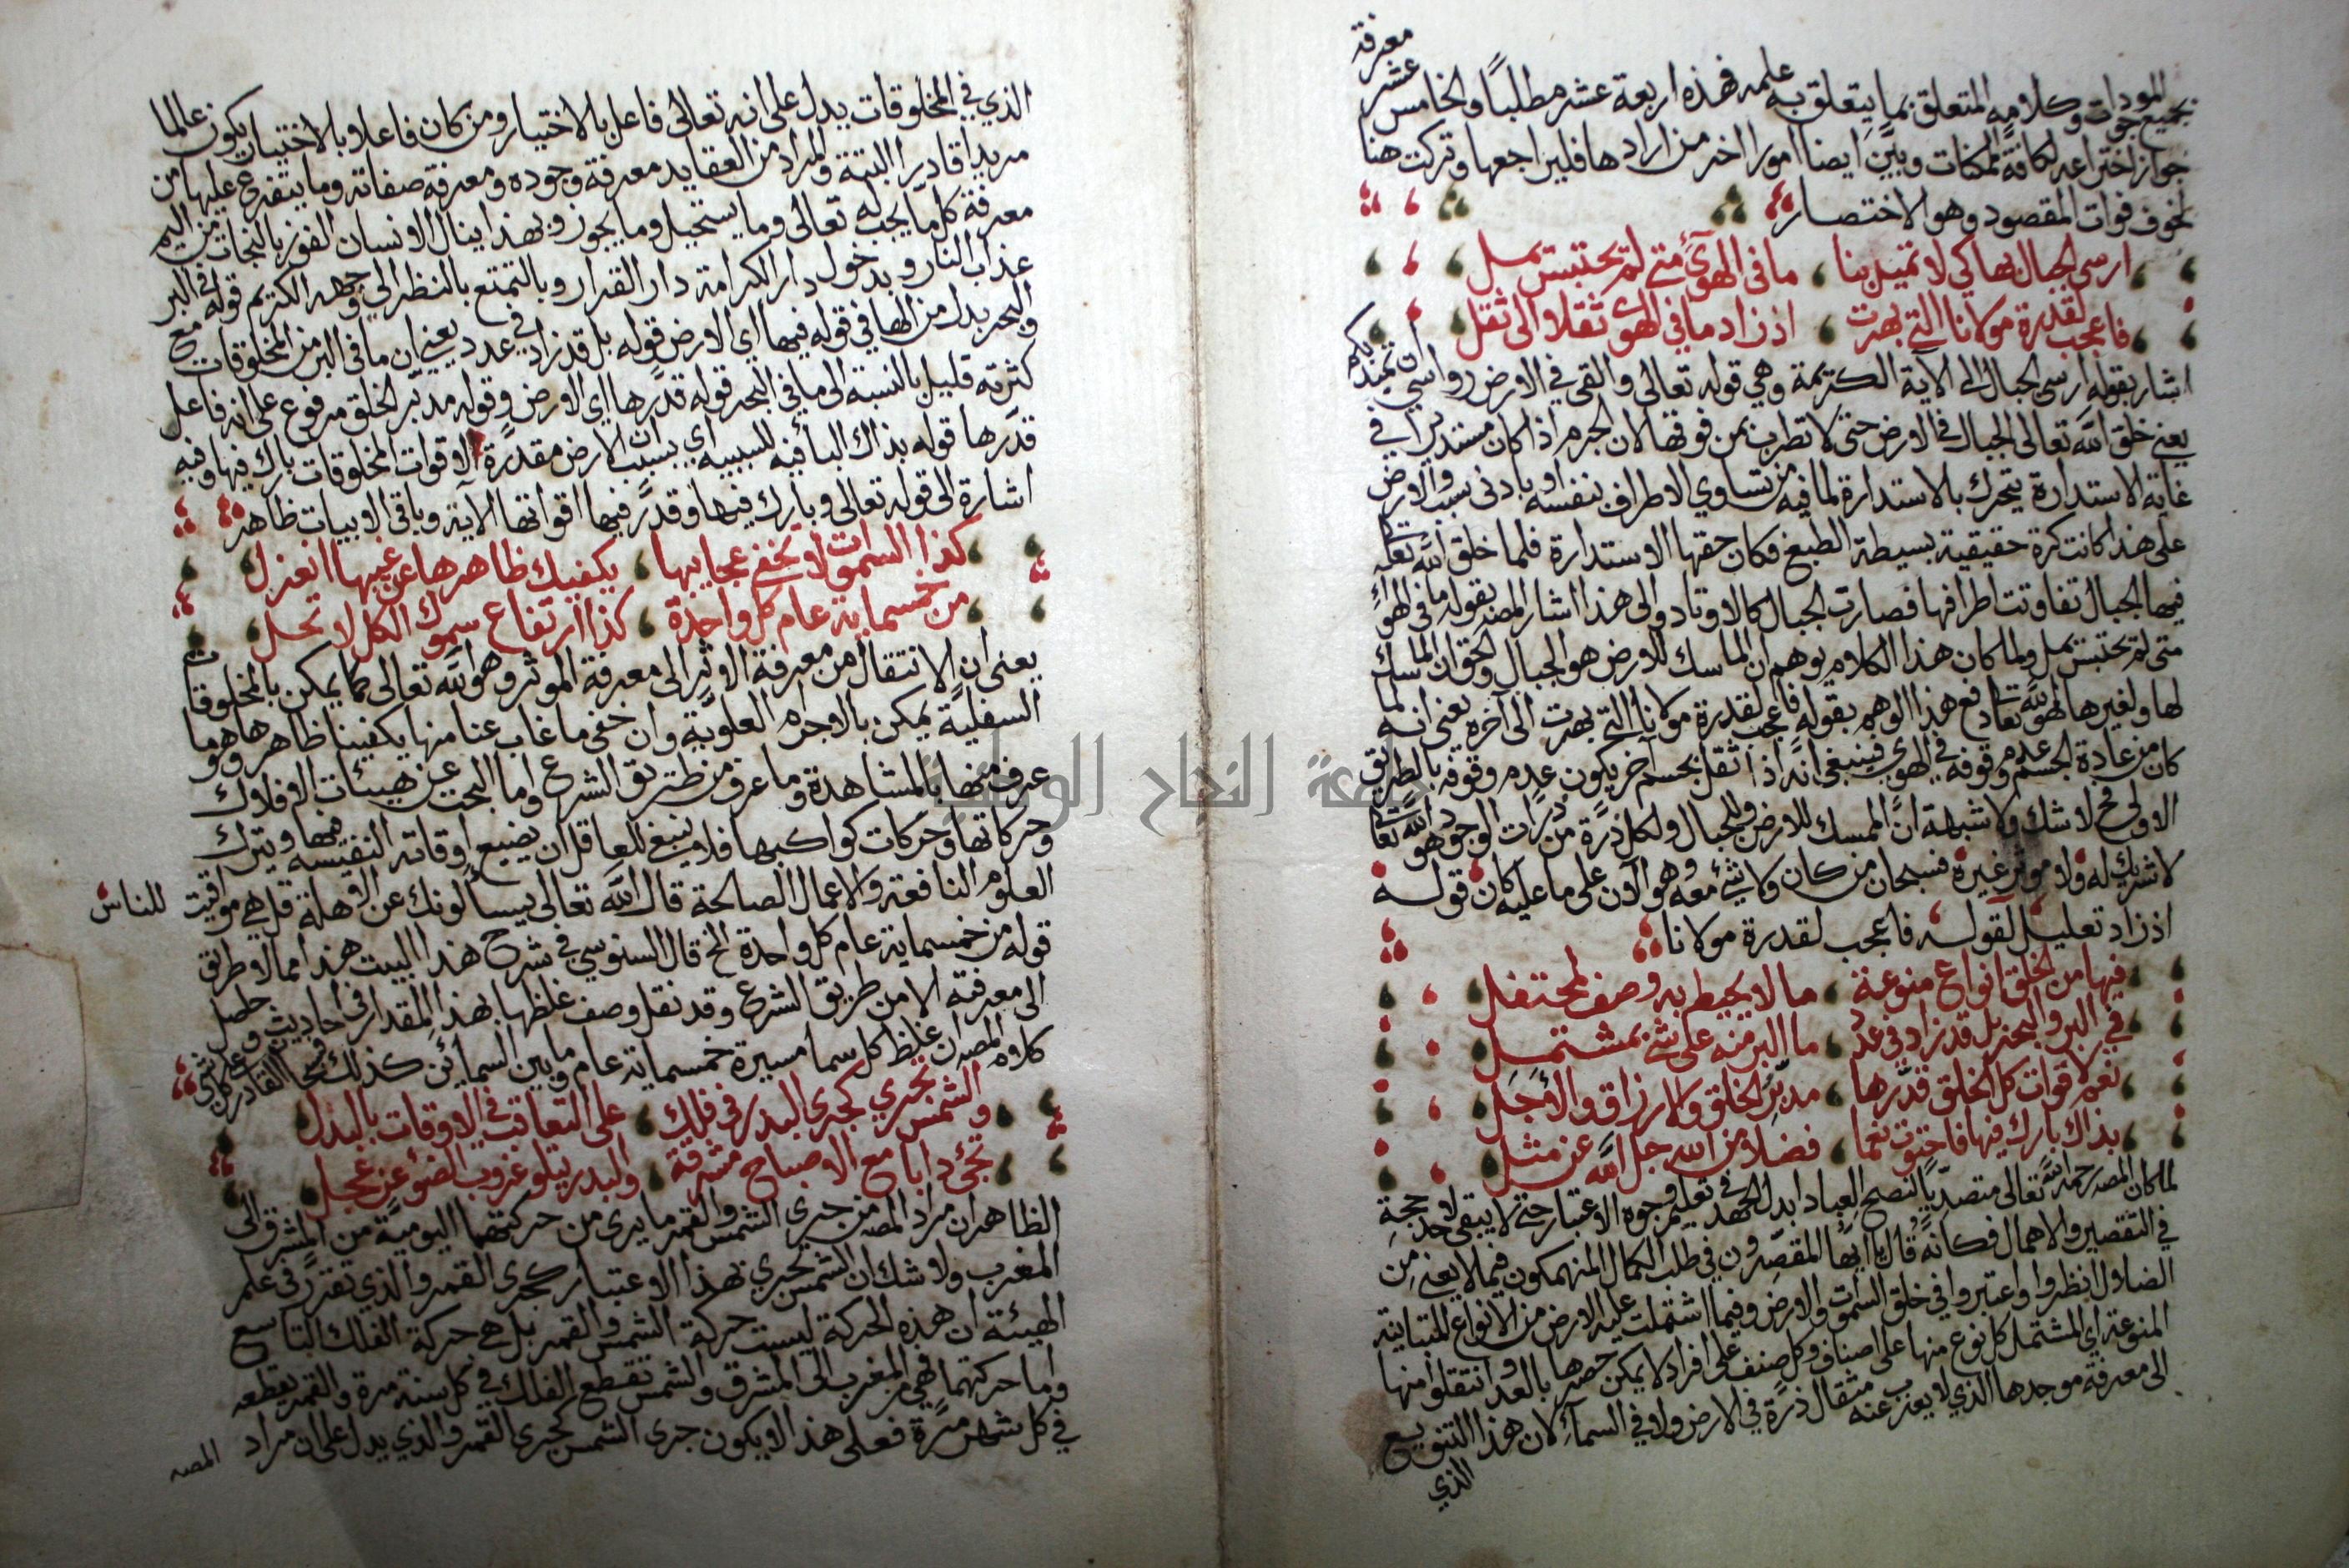 معرفة
بجميع الموجودات وكلامه المتعلق بما يتعلق به علمه فهذه اربعة عشر مطلبا والخامس عشر
جواز اختراعه لكافة الممكنات وبين ايضا امورا اخر من ارادها فليراجعها وتركت هنا
لخوف فوات المقصود وهو الاختصار
ارسى الجبال بها كي لا تميل بنا ما في الهوى متى لم تحتبس يمل
فاعجب لقدرة مولانا التي بهرت اذ زاد ما في الهوى ثقلا والى ثقل
اشار بقوله ارسى الجبال الى الآية الكريمة وهي قوله تعالى والقى في الارض رواسي ان تميد بكم
يعني خلق الله تعالى الجبال في الارض حتى لا تطرب بمن فوقها لان الجرم اذا كان مستديرا في
غاية الاستدارة يتحرك بالاستدارة لما فيه من تساوي الاطراف بنفسه او بادنى سبب والارض
على هذا كانت كرة حقيقية بسيطة الطبع فكان حقها الاستدارة فلما خلق الله تعالى
فيها الجبال تفاوتت اطرافها فصارت الجبال كالاوتاد والى هذا اشار المصه بقوله ما في الهواء
متى لم تحتبس يمل ولما كان هذا الكلام يوهم ان الماسك للارض هو الجبال والحق ان الماسك
لها ولغيرها هو الله تعالى دفع هذا الوهم بقوله فاعجب لقدرة مولانا التي بهرت الى آخره يعني انه لما
كان من عادة الجسم عدم وقوفه في الهوى فينبغي انه اذا اثقل بجسم آخر يكون عدم وقوفه بالطريق
الاولى فح لا شك ولا شبهة ان الممسك للارض والجبال ولكل ذرة من ذرات الوجود هو الله تعالى
لا شريك له ولا موثر غيره فسبحان من كان ولا شئ معه وهو الآن على ما عليه كان قوله
اذ زاد تعليل لقوله فاعجب لقدرة مولانا
فيها من الخلق انواع منوعة ما لا يحيط به وصف لمحتفل
في البر والبحر بل قد زاد في عدد ما البر منه على شئ بمشتمل
نعم لاقوات كل الخلق قدرها مدبر الخلق والارزاق والاجل
بذاك بارك فيها فاحتوت نعما فضلا من الله جل الله عن مثل
لما كان المصه رحمه الله تعالى متصديا لنصح العباد ابدل الجهد في تعليم وجوه الاعتبار حتى لا يبقى لاحد حجة
في التقصير والاهمال فكانه قال يا ايها المقصرون في طلب الكمال المنهمكون فيما لا يعني من
الضلال انظروا واعتبروا في خلق السموات والارض وفيما اشتملت عليه الارض من الانواع المتباينة
المنوعة اي المشتمل كل نوع منها على اصناف وكل صنف على افراد لا يمكن حصرها بالعد وانتقلوا منها
الى معرفة موجدها الذي لا يعزب عنه مثقال ذرة في الارض ولا في السماء لان هذا التنويع
الذي
الذي في المخلوقات يدل على انه تعالى فاعل بالاختيار ومن كان فاعلا بالاختيار يكون عالما
مريدا قادرا البتة والمراد من العقايد معرفة وجوده ومعرفة صفاته وما يتفرع عليها من
معرفة كل ما يجب له تعالى وما يستحيل وما يجوز وبهذا ينال الانسان الفوز بالنجات من اليم
عذاب النار وبدخول دار الكرامة دار القرار وبالتمتع بالنظر الى وجهه الكريم قوله في البر
والبحر بدل من الها في قوله فيها اي الارض قوله بل قد زاد في عدد يعني ان ما في البر من المخلوقات مع
كثرته قليل بالنسبة الى ما في البحر قوله قدرها اي الارض وقوله مدبر الخلق مرفوع على انه فاعل
قدرها قوله بذاك البا فيه للسببيه اي بسبب ان الارض مقدرة لاقوات المخلوقات بارك فيها وفيه
اشارة الى قوله تعالى وبارك فيها وقدر فيها اقواتها الآية وباقي الابيات ظاهر
كذا السموات لا تخفى عجايبها يكفيك ظاهرها عن غيبها انعزل
من خمسماية عام كل واحدة كذا ارتفاع سموك الكل لا تحل
يعني ان الانتقال من معرفة الاثر الى معرفة الموثر وهو الله تعالى كما يمكن بالمخلوقات
السفلية يمكن بالاجرام العلوية وان خفي ما غاب عنا منها يكفينا ظاهرها وهو ما
عرف منها بالمشاهدة وما عرف من طريق الشرع واما البحث عن هيئات الافلاك
وحركاتها وحركات كواكبها فلا ينبغي للعاقل ان يضيع اوقاته النفيسة فيها ويترك
العلوم النافعة والاعمال الصالحة قال الله تعالى يسألونك عن الاهلة قل هي مواقيت للناس
قوله من خمسماية عام كل واحدة الخ قال السنوسي في شرح هذا البيت هذا مما لا طريق
الى معرفته الا من طريق الشرع وقد نقل وصف غلظها بهذا المقدار في احاديث وحاصل
كلام المصه ان غلظ كل سما مسيرة خمسماية عام وما بين السمائين كذلك سبحان القادر على كل شئ
والشمس تجري كجري البدر في فلك على التعاقب في الاوقات بالبدل
تجئ دابا مع الاصباح مشرقة والبدر يتلو غروب الضوء عن عجل
الظاهر ان مراد المصه من جري الشمس والقمر ما يرى من حركتهما اليومية من المشرق الى
المغرب ولا شك ان الشمس تجري بهذا الاعتبار كجري القمر والذي تقرر في علم
الهيئة ان هذه الحركة ليست حركة الشمس والقمر بل هي حركة الفلك التاسع
واما حركتهما فهي من المغرب الى المشرق والشمس تقطع الفلك في كل سنة مرة والقمر يقطعه
في كل شهر مرة فعلى هذا لا يكون جري الشمس كجري القمر والذي يدل على ان مراد
المصه
جامعة النجاح الوطنية